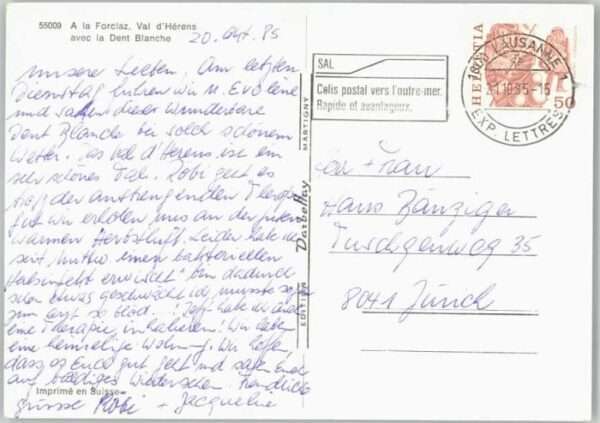 55009 A la Forclaz, Val d'Hérens
avec la Dent Blanche
20. Okt. 85
Unsere Lieben, Am letzten
Dienstag fuhren wir n. Evolène
und sahen diese wunderbare
Dent Blanche bei solch schönem
Wetter. Das Val d'Hérens ist ein
sehr schönes Tal. Robi geht es
trotz der anstrengenden Therapie
gut wir erholen uns an der guten
warmen Herbstluft. Leider habe ich
seit einen bakteriellen
Halsinfekt erwischt bin dadurch
schon etwas geschwächt
zum Arzt so blöd. Jetzt habe ich
eine Therapie, inhalieren! Wir haben
eine heimelige Wohnung. Wir hoffen,
dass es Euch gut geht und sagen Euch
auf baldiges Wiedersehen. Freundliche
Grüsse Robi + Jacqueline
Imprimé en Suisse
EDITION Darbellay MARTIGNY
SAL
Colis postal vers l'outre-mer.
Rapide et avantageux.
HELVETIA
50
1000 LAUSANNE 1
21.10.85-15
EXP. LETTRES
Frau
Hans Zänziger
35
8041 Zürich